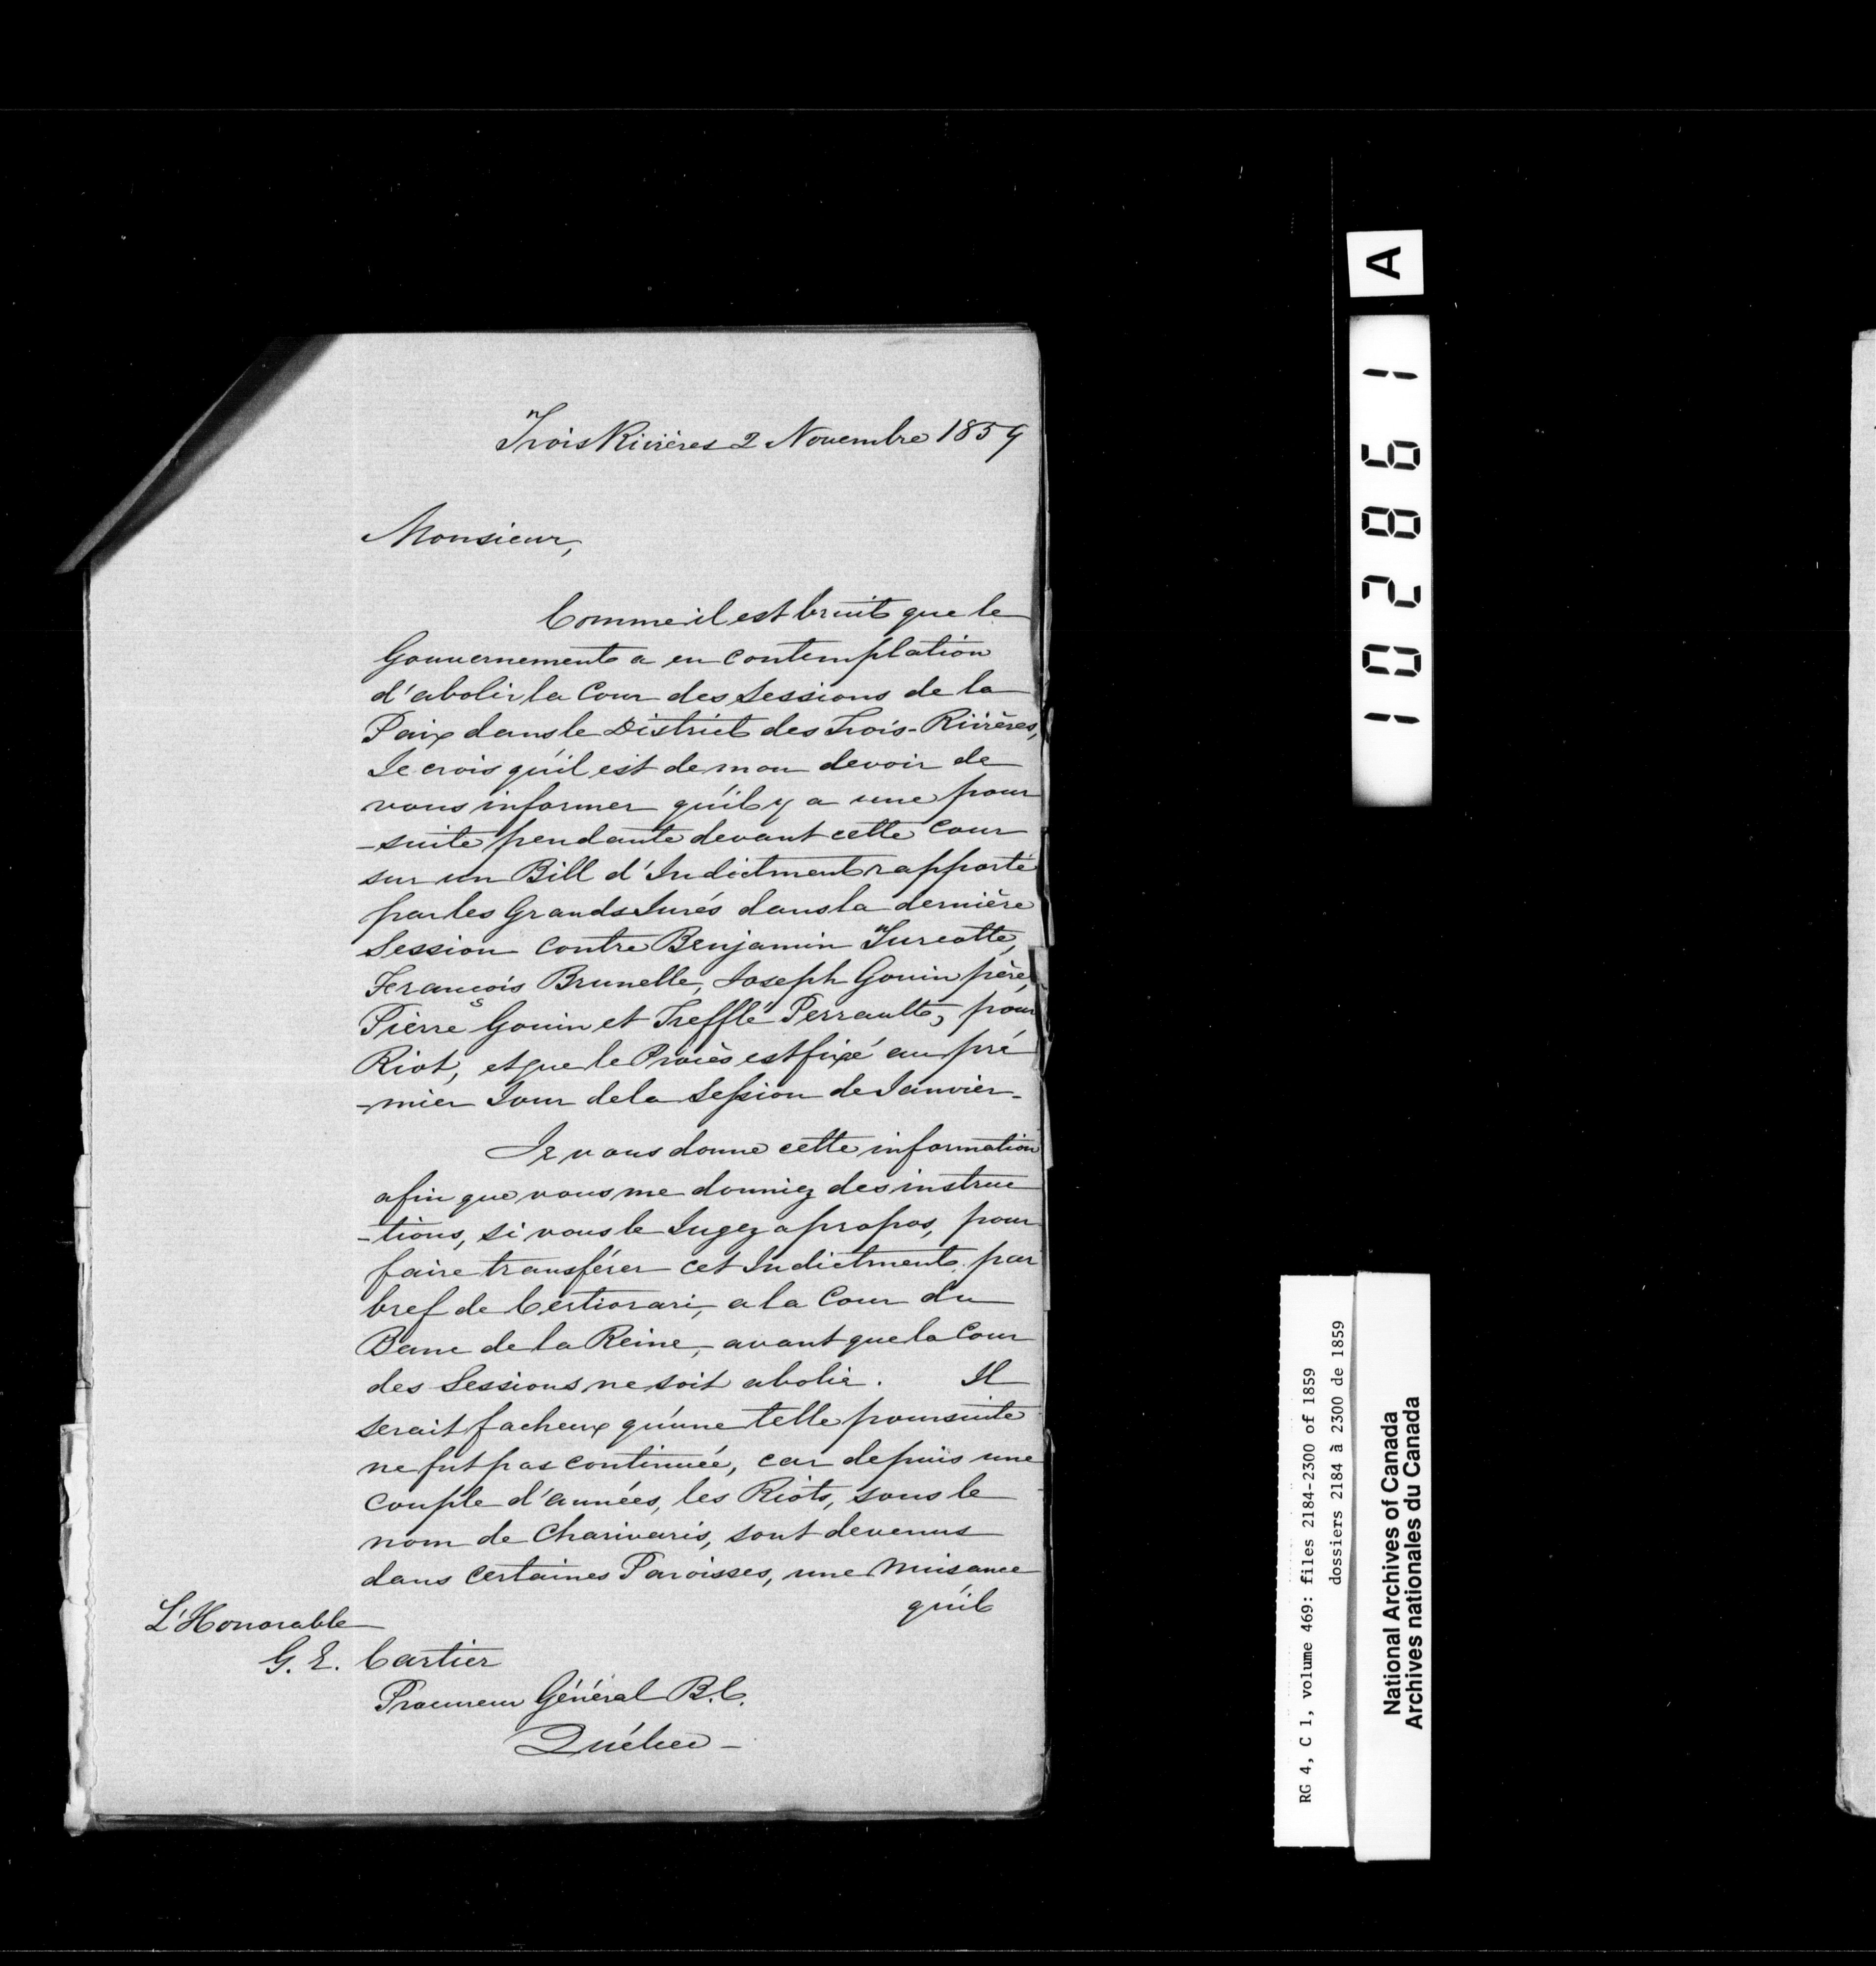 Trois Rivières 2 Novembre 1859
Monsieur,
Comme il est bruit que le
Gouvernement a en contemplation
d'abolir la Cour des Sessions de la
Paix dans le District des Trois-Rivières,
Je crois qu'il est de mon devoir de
vous informer qu'il y a une pour
-suite pendante devant cette Cour
sur un Bill d'Indictment rapporté
par les Grands Jurés dans la dernière
Session contre Benjamin Turcotte,
François Brunelle, Joseph Gouin père,
Pierre Gouin et Trefflé Perrault, pour
Riot, et que le Procès est fixé au pré
-mier Jour de la Session de Janvier-
Je vous donne cette information
afin que vous me donniez des instruc
-tions, si vous le Jugez a propos, pour
faire transférer cet Indictment par
bref de Certiorari, a la Cour du
Banc de la Reine, avant que la Cour
des Sessions ne soit abolie. Il
serait facheux qu'une telle poursuite
ne fut pas continuée, car depuis une
couple d'années, les Riots, sous le
nom de Charivaris, sont devenus
dans certaines Paroisses, une Nuisance
qu'il
L'Honorable
G. E. Cartier
Procureur Général B.C.
Québec -
A
102861
RG 4, C 1, volume 469: files 2184-2300 of 1859
dossiers 2184 à 2300 de 1859
National Archives of Canada
Archives nationales du Canada